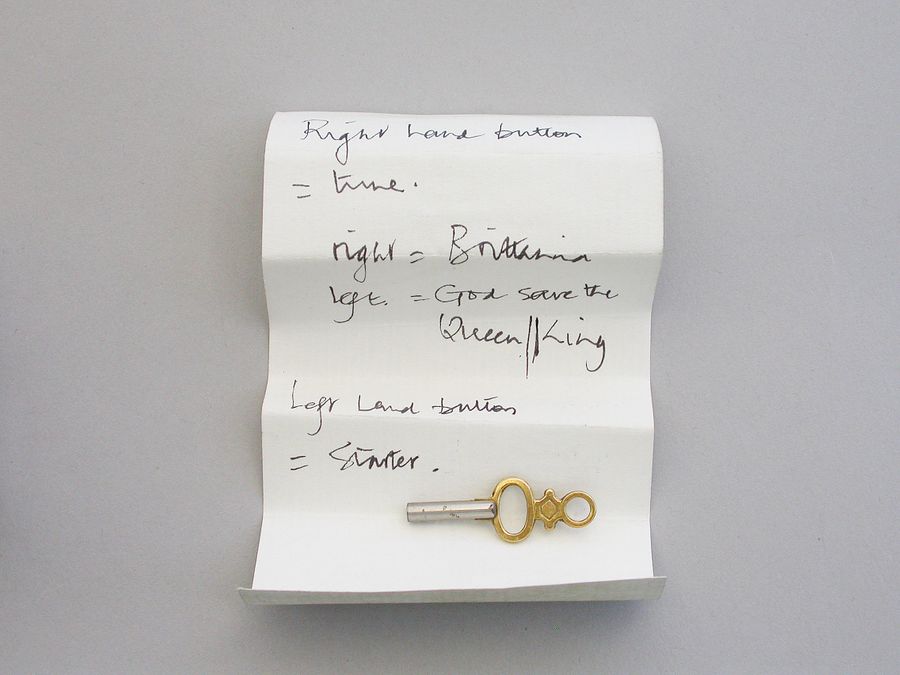 Right hand button
= tune.
right = Brittania
left. = God save the
Queen//King
Left hand button
= Starter.